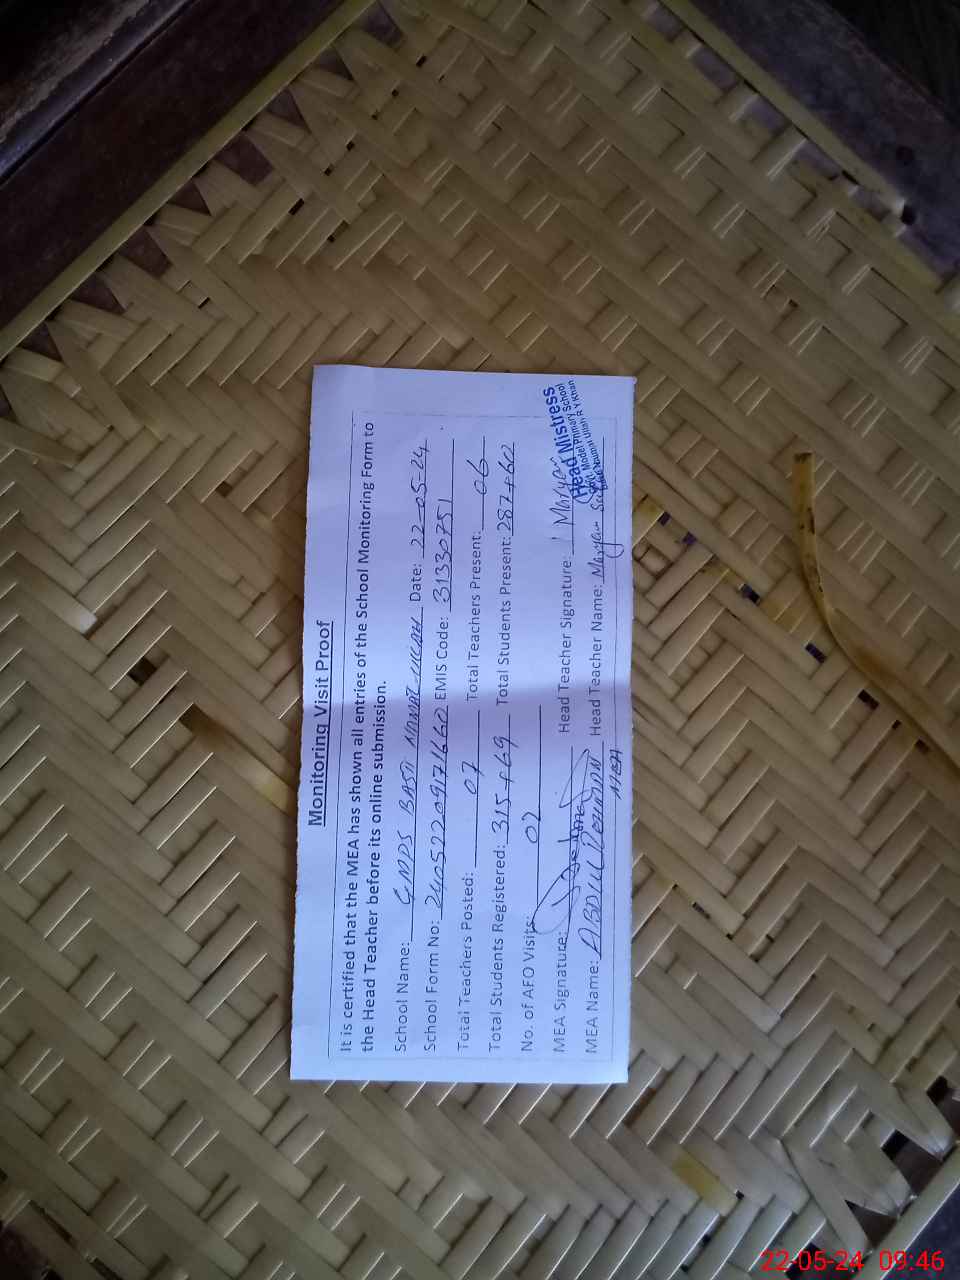 Monitoring Visit Proof
It is certified that the MEA has shown all entries of the School Monitoring Form to
the Head Teacher before its online submission.
School Name: GMPS BASTI NAIMAT ULLAH Date: 22-05-24
School Form No: 2405220971660 EMIS Code: 3133075
Total Teachers Posted: 07 Total Teachers Present: 06
Total Students Registered: 315+69 Total Students Present: 287+60
No. of AEO Visits: 02
MEA Signature: Head Teacher Signature: Maryam
MEA Name: ABDUL REHMAN Head Teacher Name: Maryam
MEA
Head Mistress
Govt. Model Primary School
R Y Khan
22-05-24 09:46